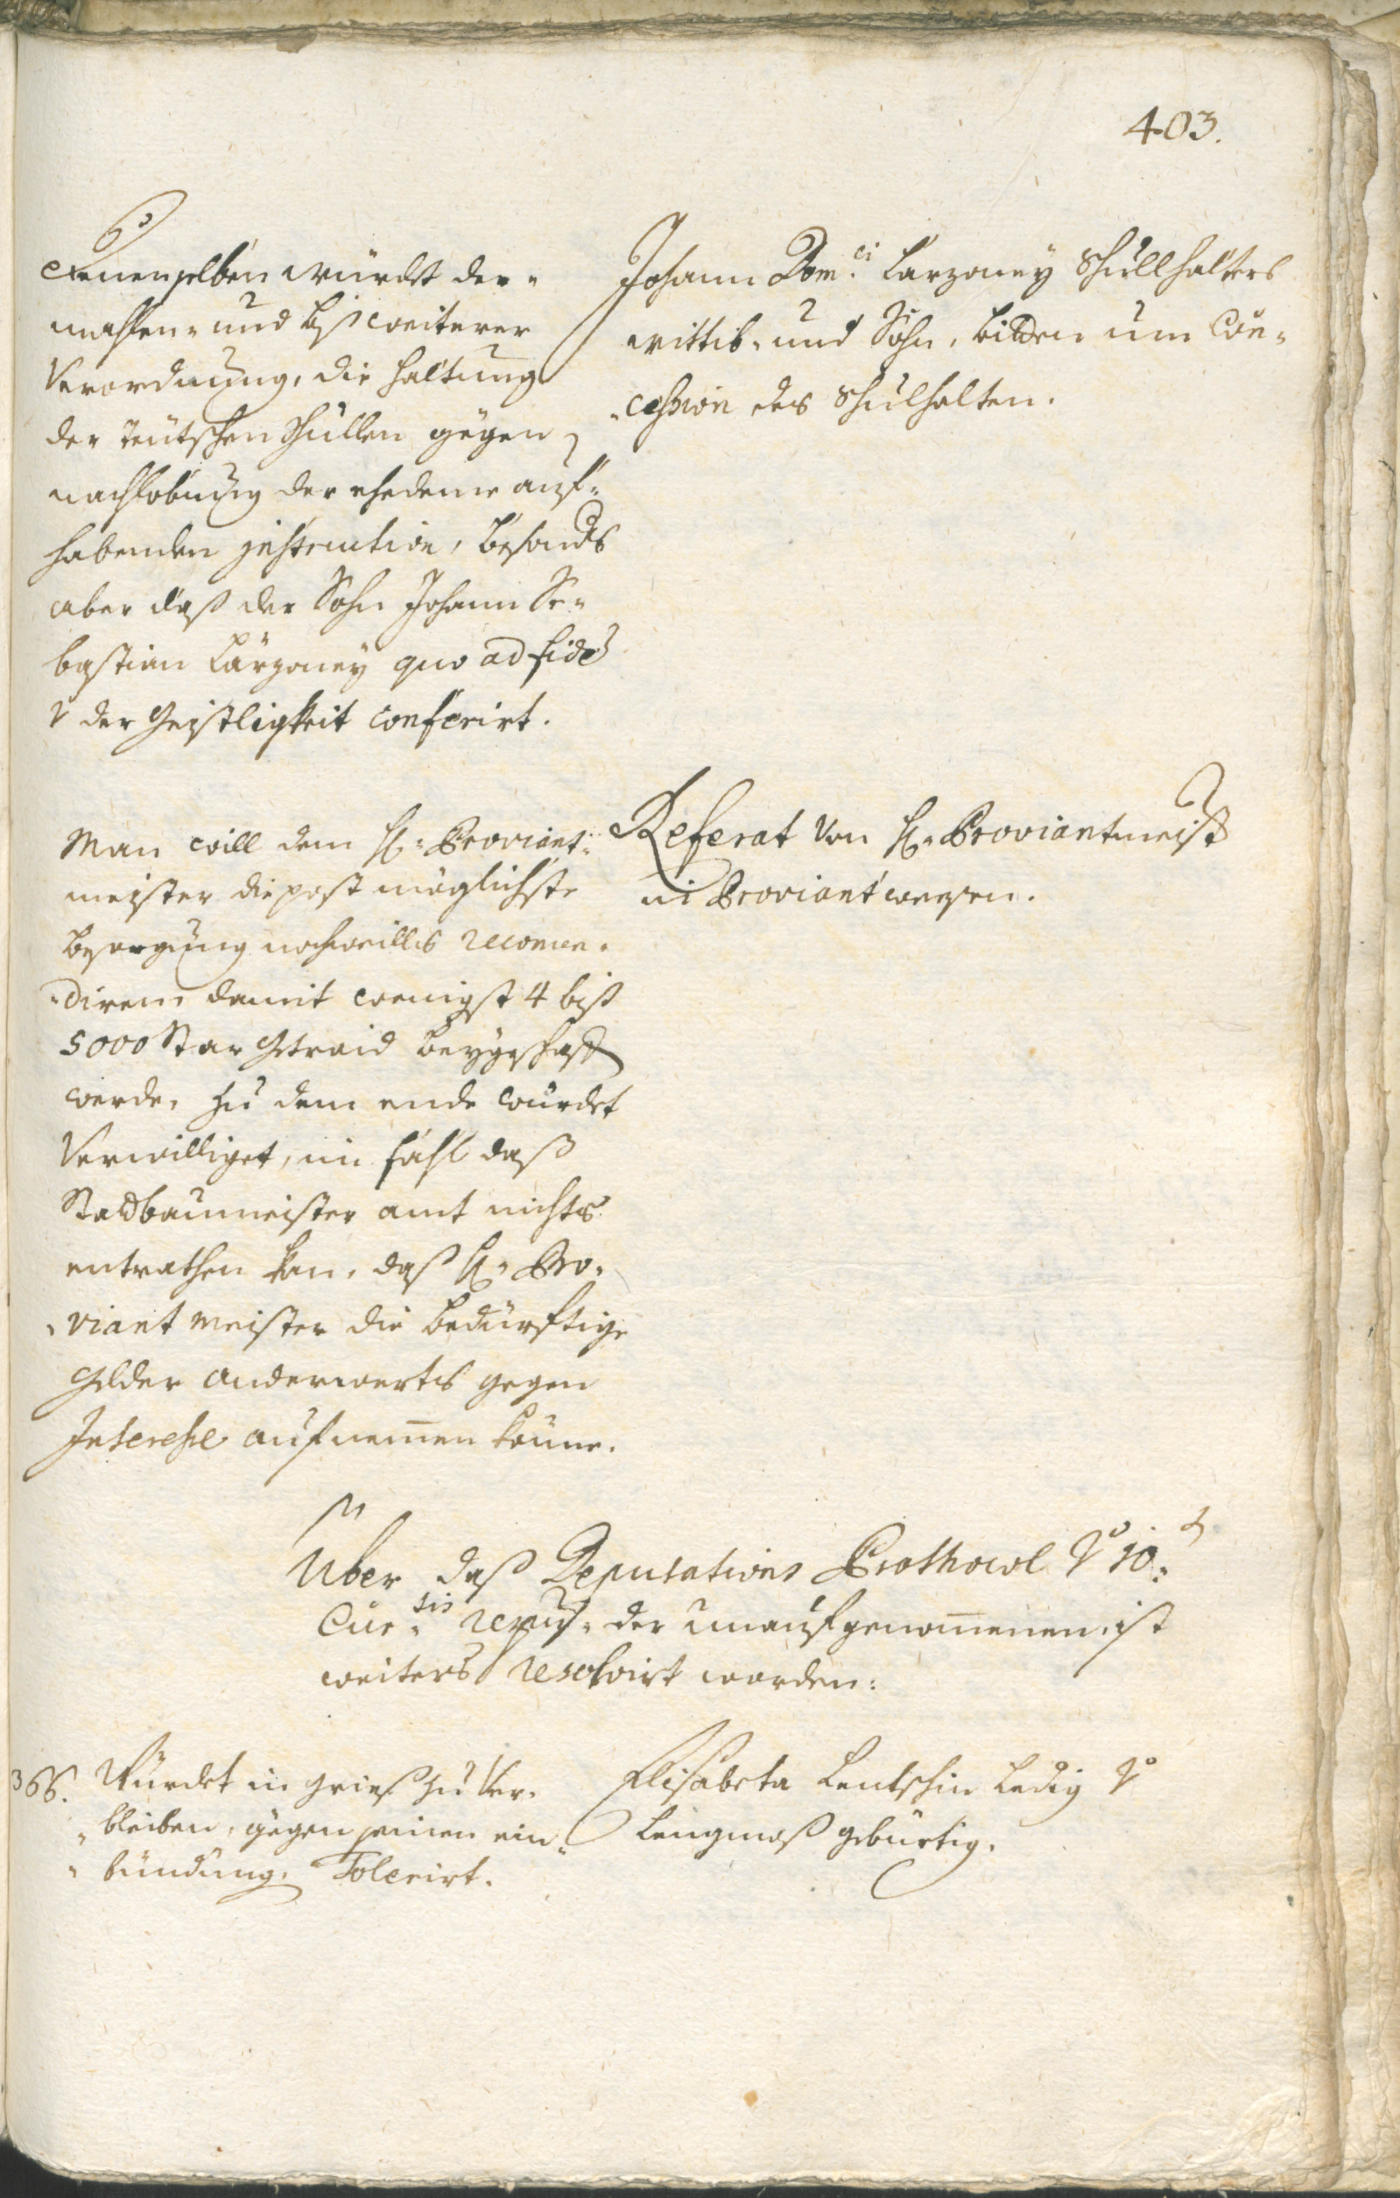 403.
Denenselben würdt der¬
mahlen und biß weiterer
Verordnung, die haltung
der teütschen Schullen gegen
nachlobung der ehedeme auf¬
habenden jnstruction, besonds
aber daß der Sohn Johann Se¬
bastian Larzoney quo ad fidē
v der Geistligkeit conferirt.
Johann Dom:ci Larzoney Schullhalters
wittib, und Sohn, bitten um Con¬
cession des Schulhalten.
Man will dem H: Proviant¬
meister die post möglichste
besorgung nochmalls recomen¬
diren damit wenigst 4 biß
5000 Star Getraid beygeschafft
werde, zu dem ende würdet
Verwilliget, im fahl daß
Stattbaumeister amt nichts
entrathen kan, daß H: Pro¬
viant meister die bedürftige
Gelder anderwerts gegen
Interesse aufnem̄en könne.
Referat von H: Proviantmeistr
in Proviantweesen.
Über daß Deputations Prothocol v 10:t
Cur:tis der unaufgenom̄enen, ist
weiters resolvirt worden:
366. Würdet in Grieß zu Ver¬
bleiben, gegen seinen ein¬
bündung, Tolerirt.
Elisabeta Lentschin ledig v
Lengmoß gebürtig.